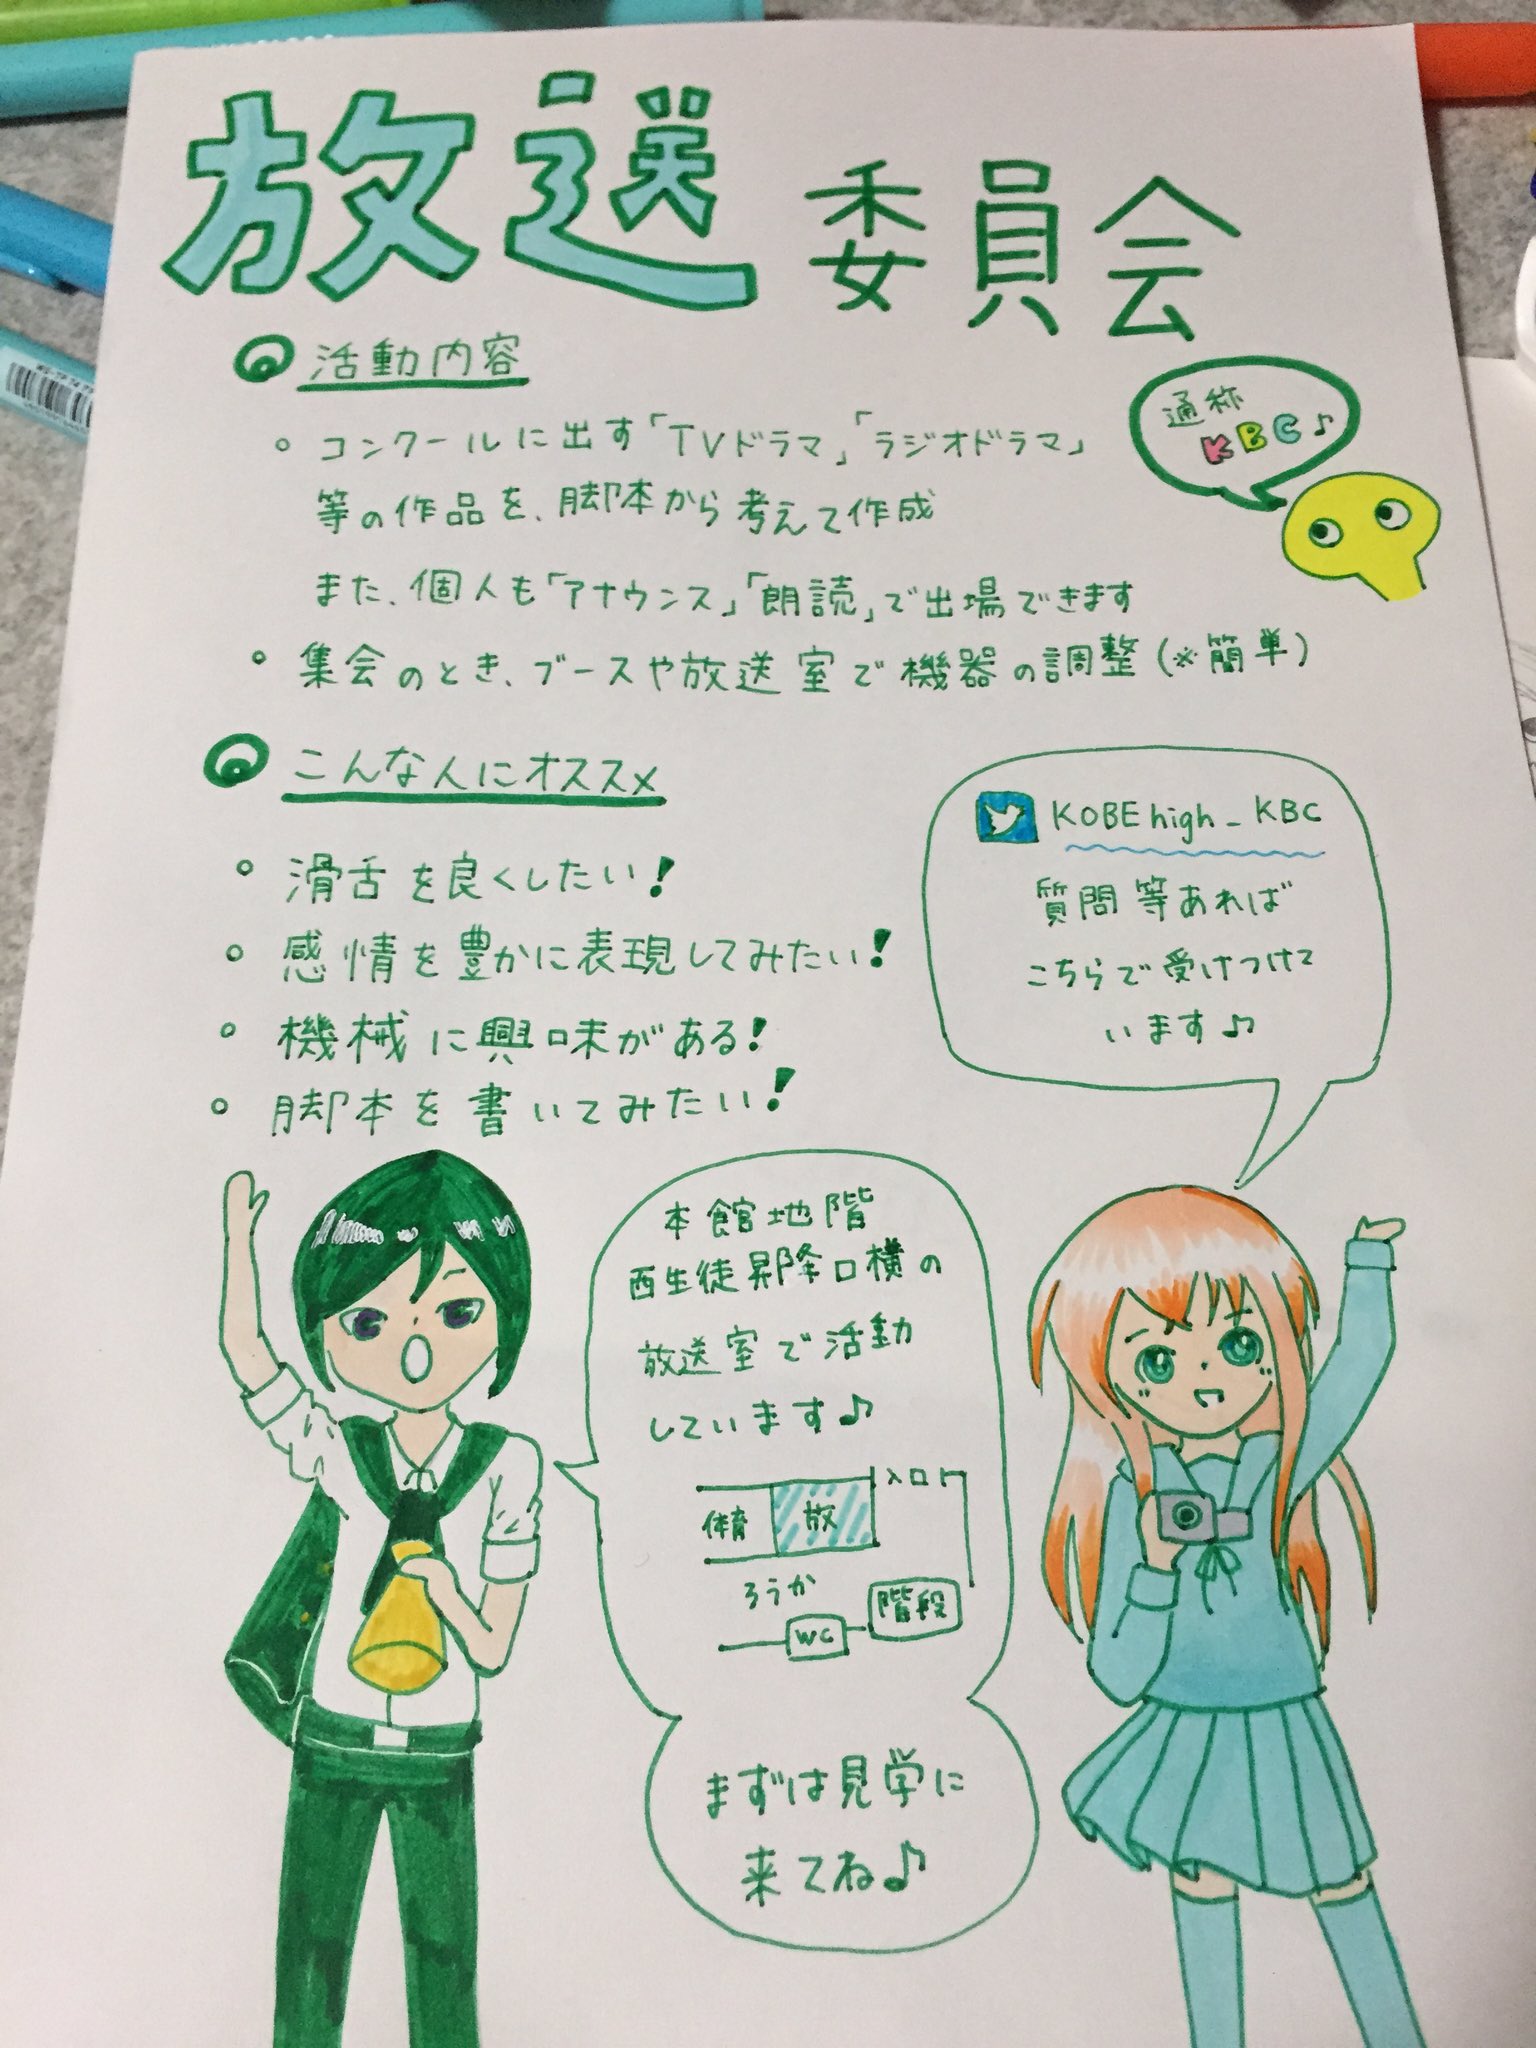 放送委員会
活動内容
通称
KBC♪
○ コンクールに出す「TVドラマ」「ラジオドラマ」
等の作品を、脚本から考えて作成
また、個人も「アナウンス」「朗読」で出場できます
○ 集会のとき、ブースや放送室で機器の調整(※簡単)
こんな人にオススメ
○ 滑舌を良くしたい!
○ 感情を豊かに表現してみたい!
○ 機械に興味がある!
○ 脚本を書いてみたい!
KOBEhigh_KBC
質問等あれば
こちらで受けつけて
います♪
本館地階
西生徒昇降口横の
放送室で活動
しています♪
入口
体育
放
ろうか
WC
階段
まずは見学に
来てね♪